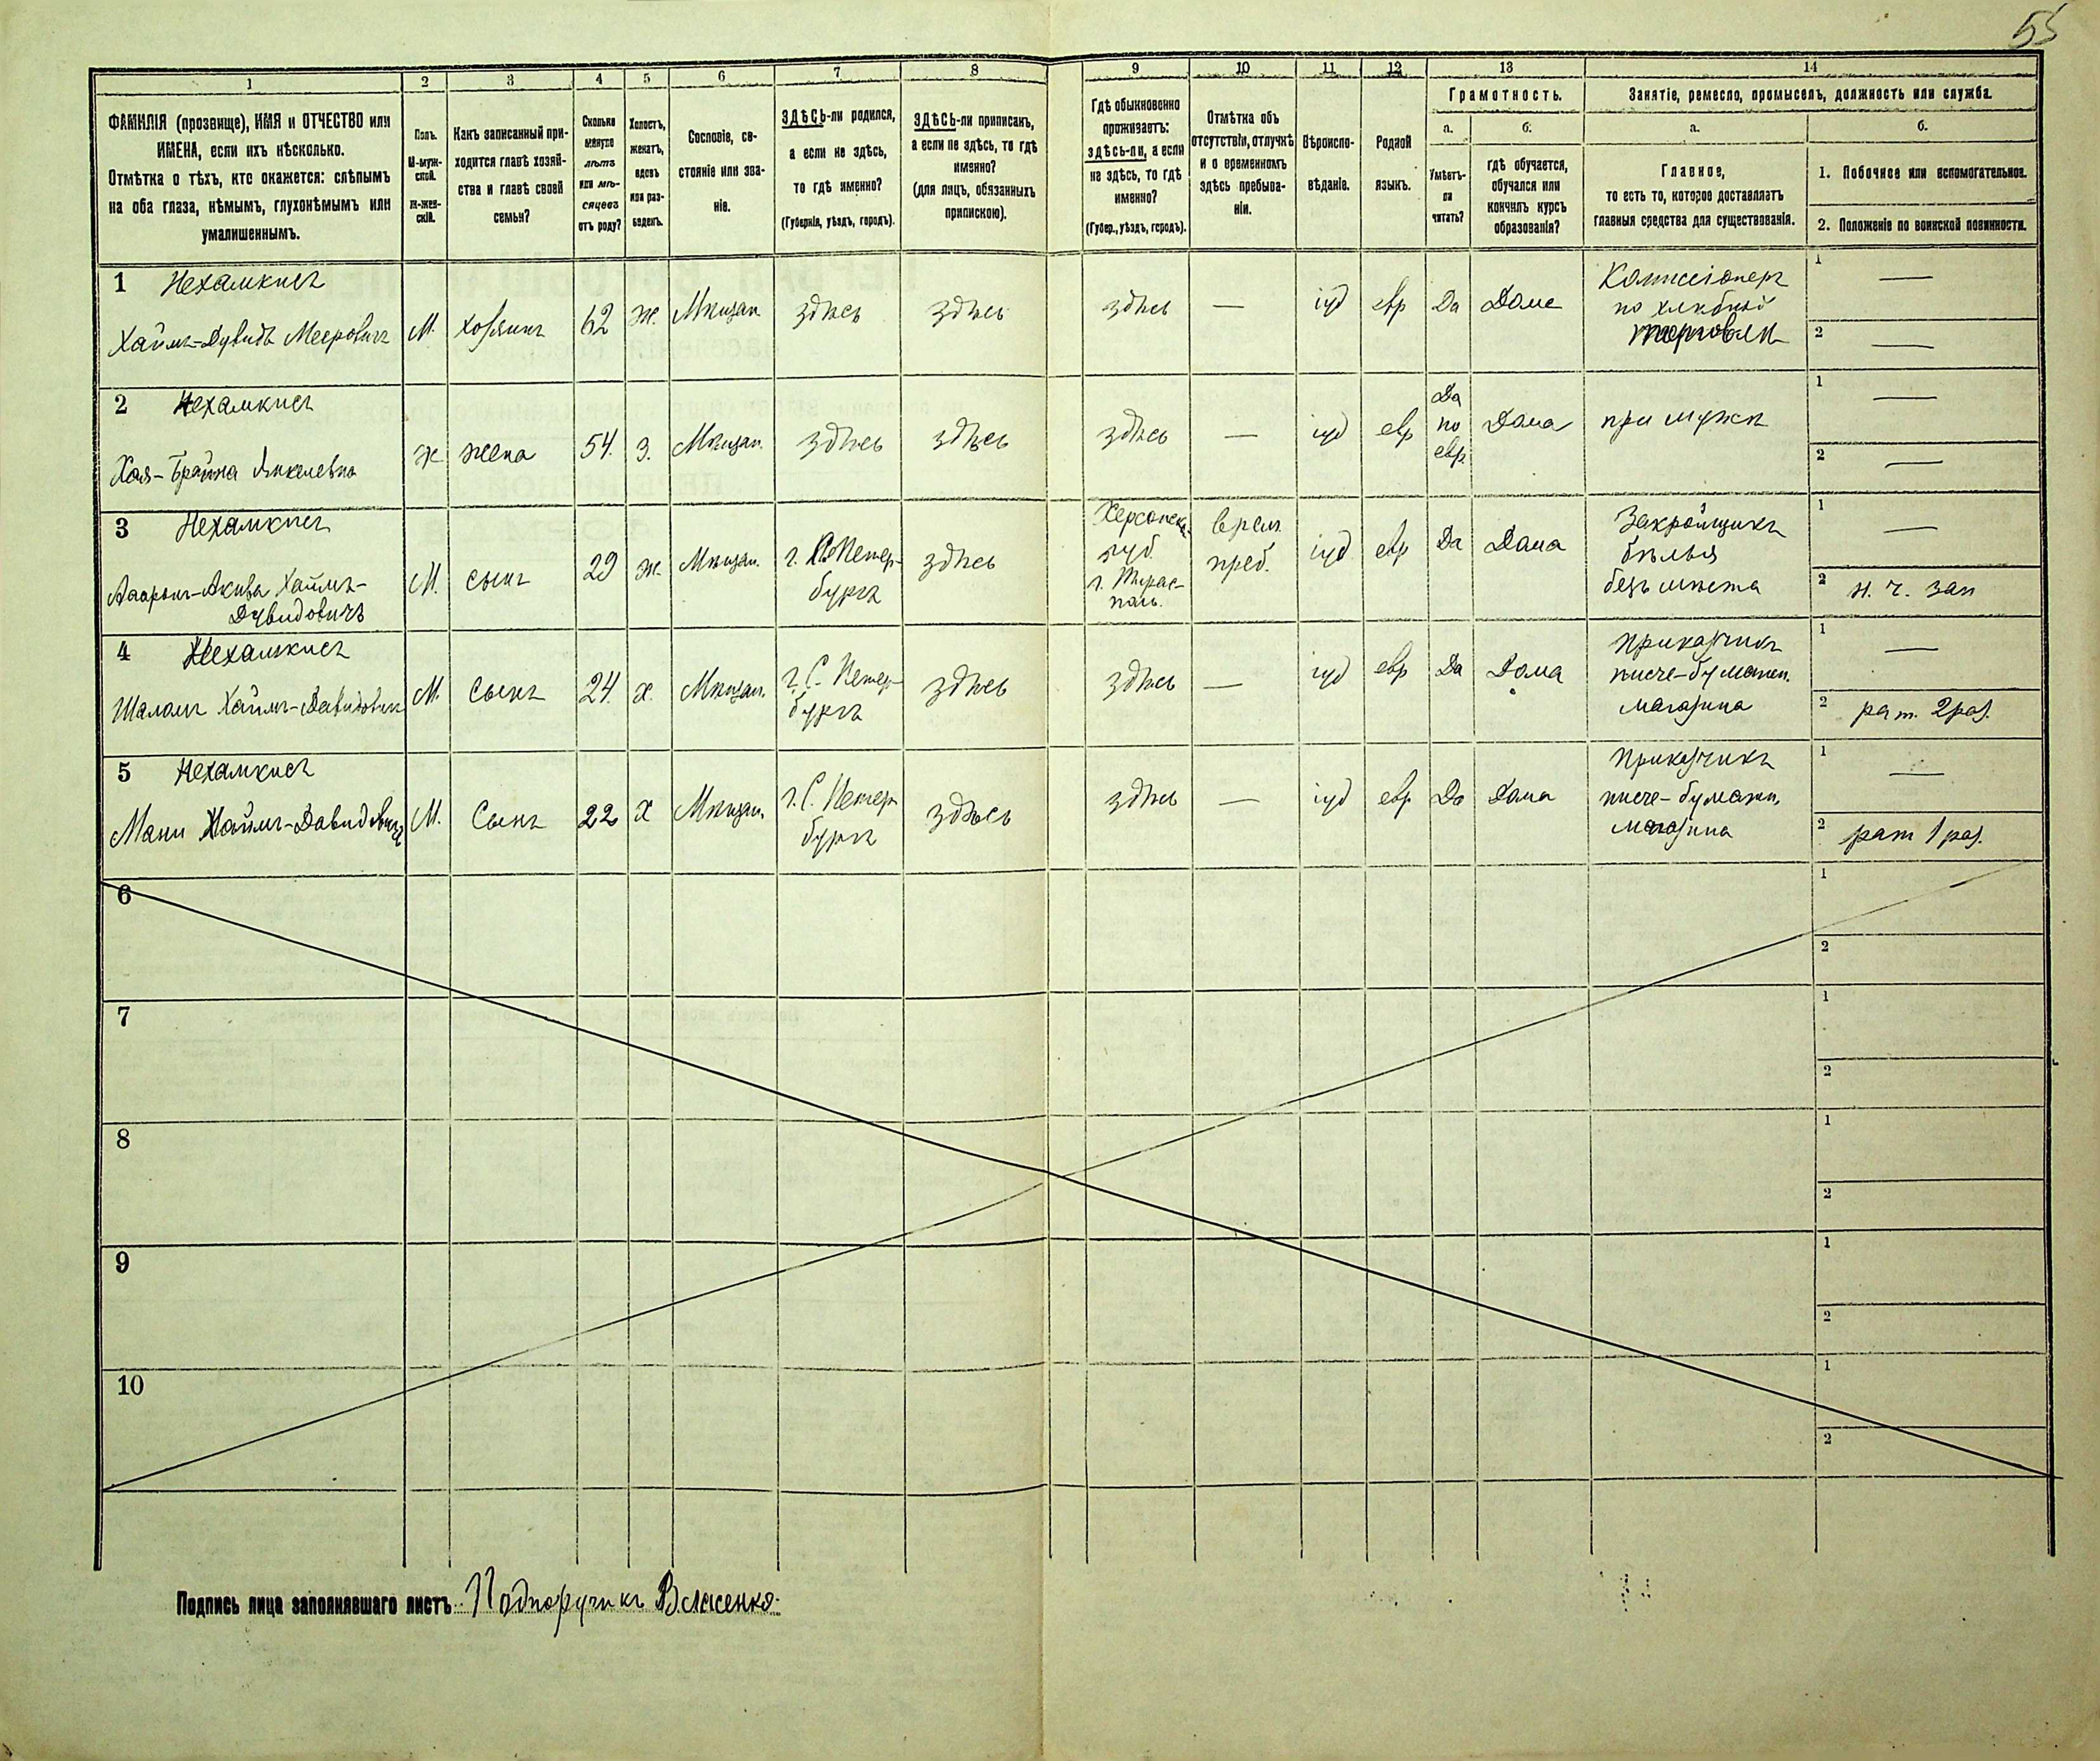 55
1 2 3 4 5 6 7 8 9 10 11 12 13 14
ФАМИЛІЯ (прозвище), ИМЯ и ОТЧЕСТВО или
ИМЕНА, если ихъ нѣсколько.
Отмѣтка о тѣхъ, кто окажется: слѣпымъ
на оба глаза, нѣмымъ, глухонѣмымъ или
умалишеннымъ.
Полъ.
М-муж-
ской.
Ж-жен-
скій.
Какъ записанный при-
ходится главѣ хозяй-
ства и главѣ своей
семьи?
Сколько
минуло
лѣтъ
или мѣ-
сяцевъ
отъ роду?
Холостъ,
женатъ,
вдовъ
или раз-
веденъ.
Сословіе, со-
стояніе или зва-
ніе.
ЗДѢСЬ-ли родился,
а если не здѣсь,
то гдѣ именно?
(Губернія, уѣздъ, городъ).
ЗДѢСЬ-ли приписанъ,
а если не здѣсь, то гдѣ
именно?
(для лицъ, обязанныхъ
припискою).
Гдѣ обыкновенно
проживаетъ:
здѣсь-ли, а если
не здѣсь, то гдѣ
именно?
(Губер., уѣздъ, городъ).
Отмѣтка объ
отсутствіи, отлучкѣ
и о временномъ
здѣсь пребыва-
ніи.
Вѣроиспо-
вѣданіе.
Родной
языкъ.
Грамотность.
а.
Умѣетъ-
ли
читать?
б.
гдѣ обучается,
обучался или
кончилъ курсъ
образованія?
Занятіе, ремесло, промыселъ, должность или служба.
а.
Главное,
то есть то, которое доставляетъ
главныя средства для существованія.
б.
1. Побочное или вспомогательное.
2. Положеніе по воинской повинности.
1 Нехамкисъ
Хаимъ-Дувидъ Мееровичъ
М.
хозяинъ
62
ж.
Мѣщан
здѣсь
здѣсь
здѣсь
—
іуд
евр
Да
Дома
Коммисіонеръ
по хлѣбной
торговли
1 —
2 —
2 Нехамкисъ
Хая-Брайна Янкелевна
ж
жена
54.
з.
Мѣщан.
здѣсь
здѣсь
здѣсь
—
іуд
евр
Да
по
евр.
Дома
при мужѣ
1 —
2 —
3 Нехамкисъ
Ааронъ-Акива Хаимъ-
Дувидовичъ
М.
сынъ
29
ж.
Мѣщан.
г. Петер-
бургъ
здѣсь
Херсонск.
губ.
г. Тирас-
поль.
врем.
преб.
іуд
евр
Да
Дома
Закройщикъ
бѣлья
безъ мѣста
1 —
2 н. ч. зап
4 Нехамкисъ
Шаломъ Хаимъ-Давидович
М
сынъ
24.
х.
Мѣщан.
г. С. Петер-
бургъ
здѣсь
здѣсь
—
іуд
евр
Да
Дома
Приказчикъ
писче-бумажн.
магазина
1 —
2 рат. 2 раз.
5 Нехамкисъ
Мани Хаимъ-Давидовичъ
М.
Сынъ
22
х
Мѣщан.
г. С. Петер
бургъ
здѣсь
здѣсь
—
іуд
евр
Да
Дома
Приказчикъ
писче-бумажн.
магазина
1 —
2 рат 1 раз.
6
1
2
7
1
2
8
1
2
9
1
2
10
1
2
Подпись лица заполнявшаго листъ Подпоручикъ Власенко.